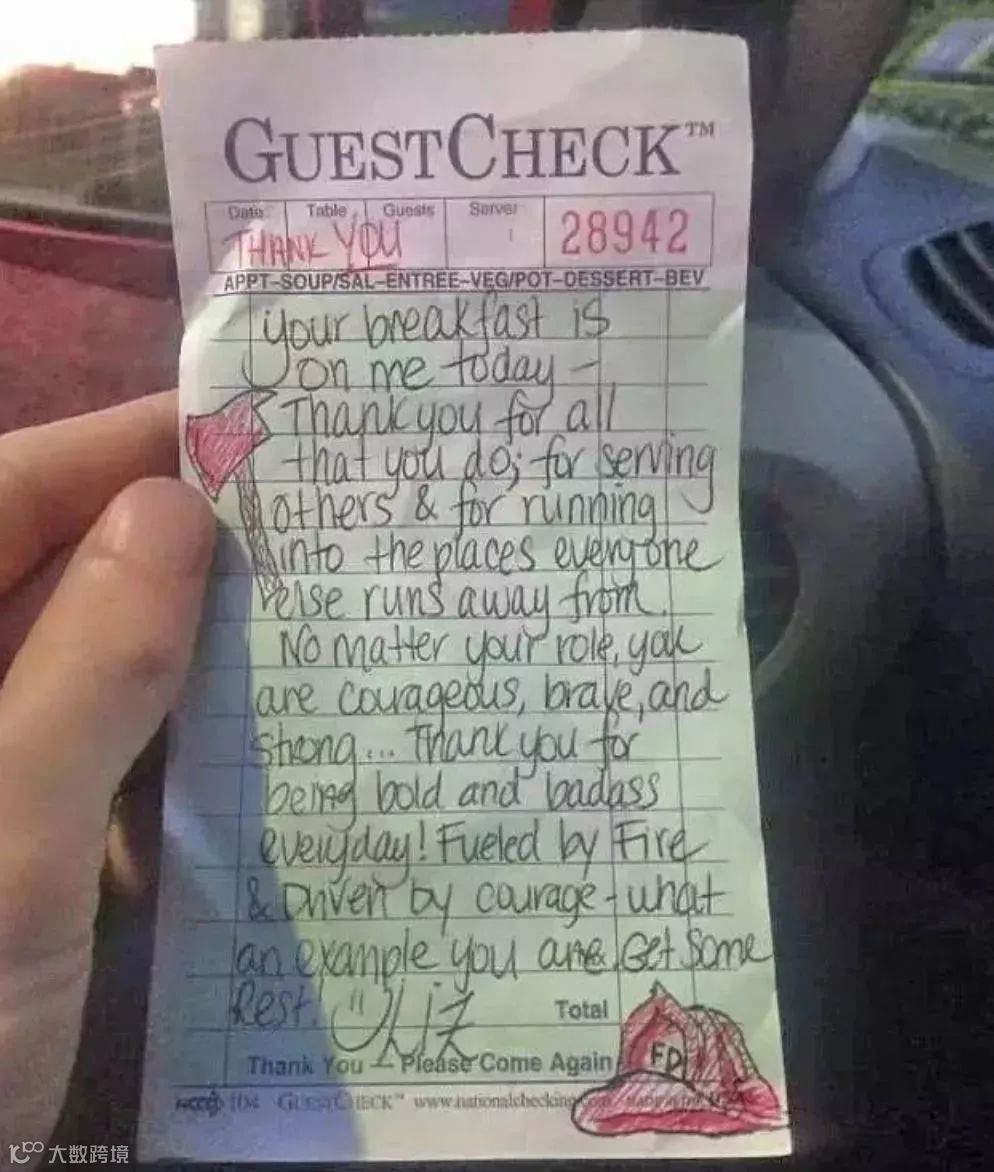 GUESTCHECK™
Date Table Guests Server
THANK YOU
28942
APPT-SOUP/SAL-ENTREE-VEG/POT-DESSERT-BEV
your breakfast is
on me today -
Thank you for all
that you do; for serving
others & for running
into the places everyone
else runs away from.
No matter your role, you
are courageous, brave, and
strong... Thank you for
being bold and badass
everyday! Fueled by Fire
& Driven by courage - what
an example you are. Get Some
Rest. Liz
Total
FD
Thank You — Please Come Again
GUESTCHECK™ www.nationalchecking
大数跨境